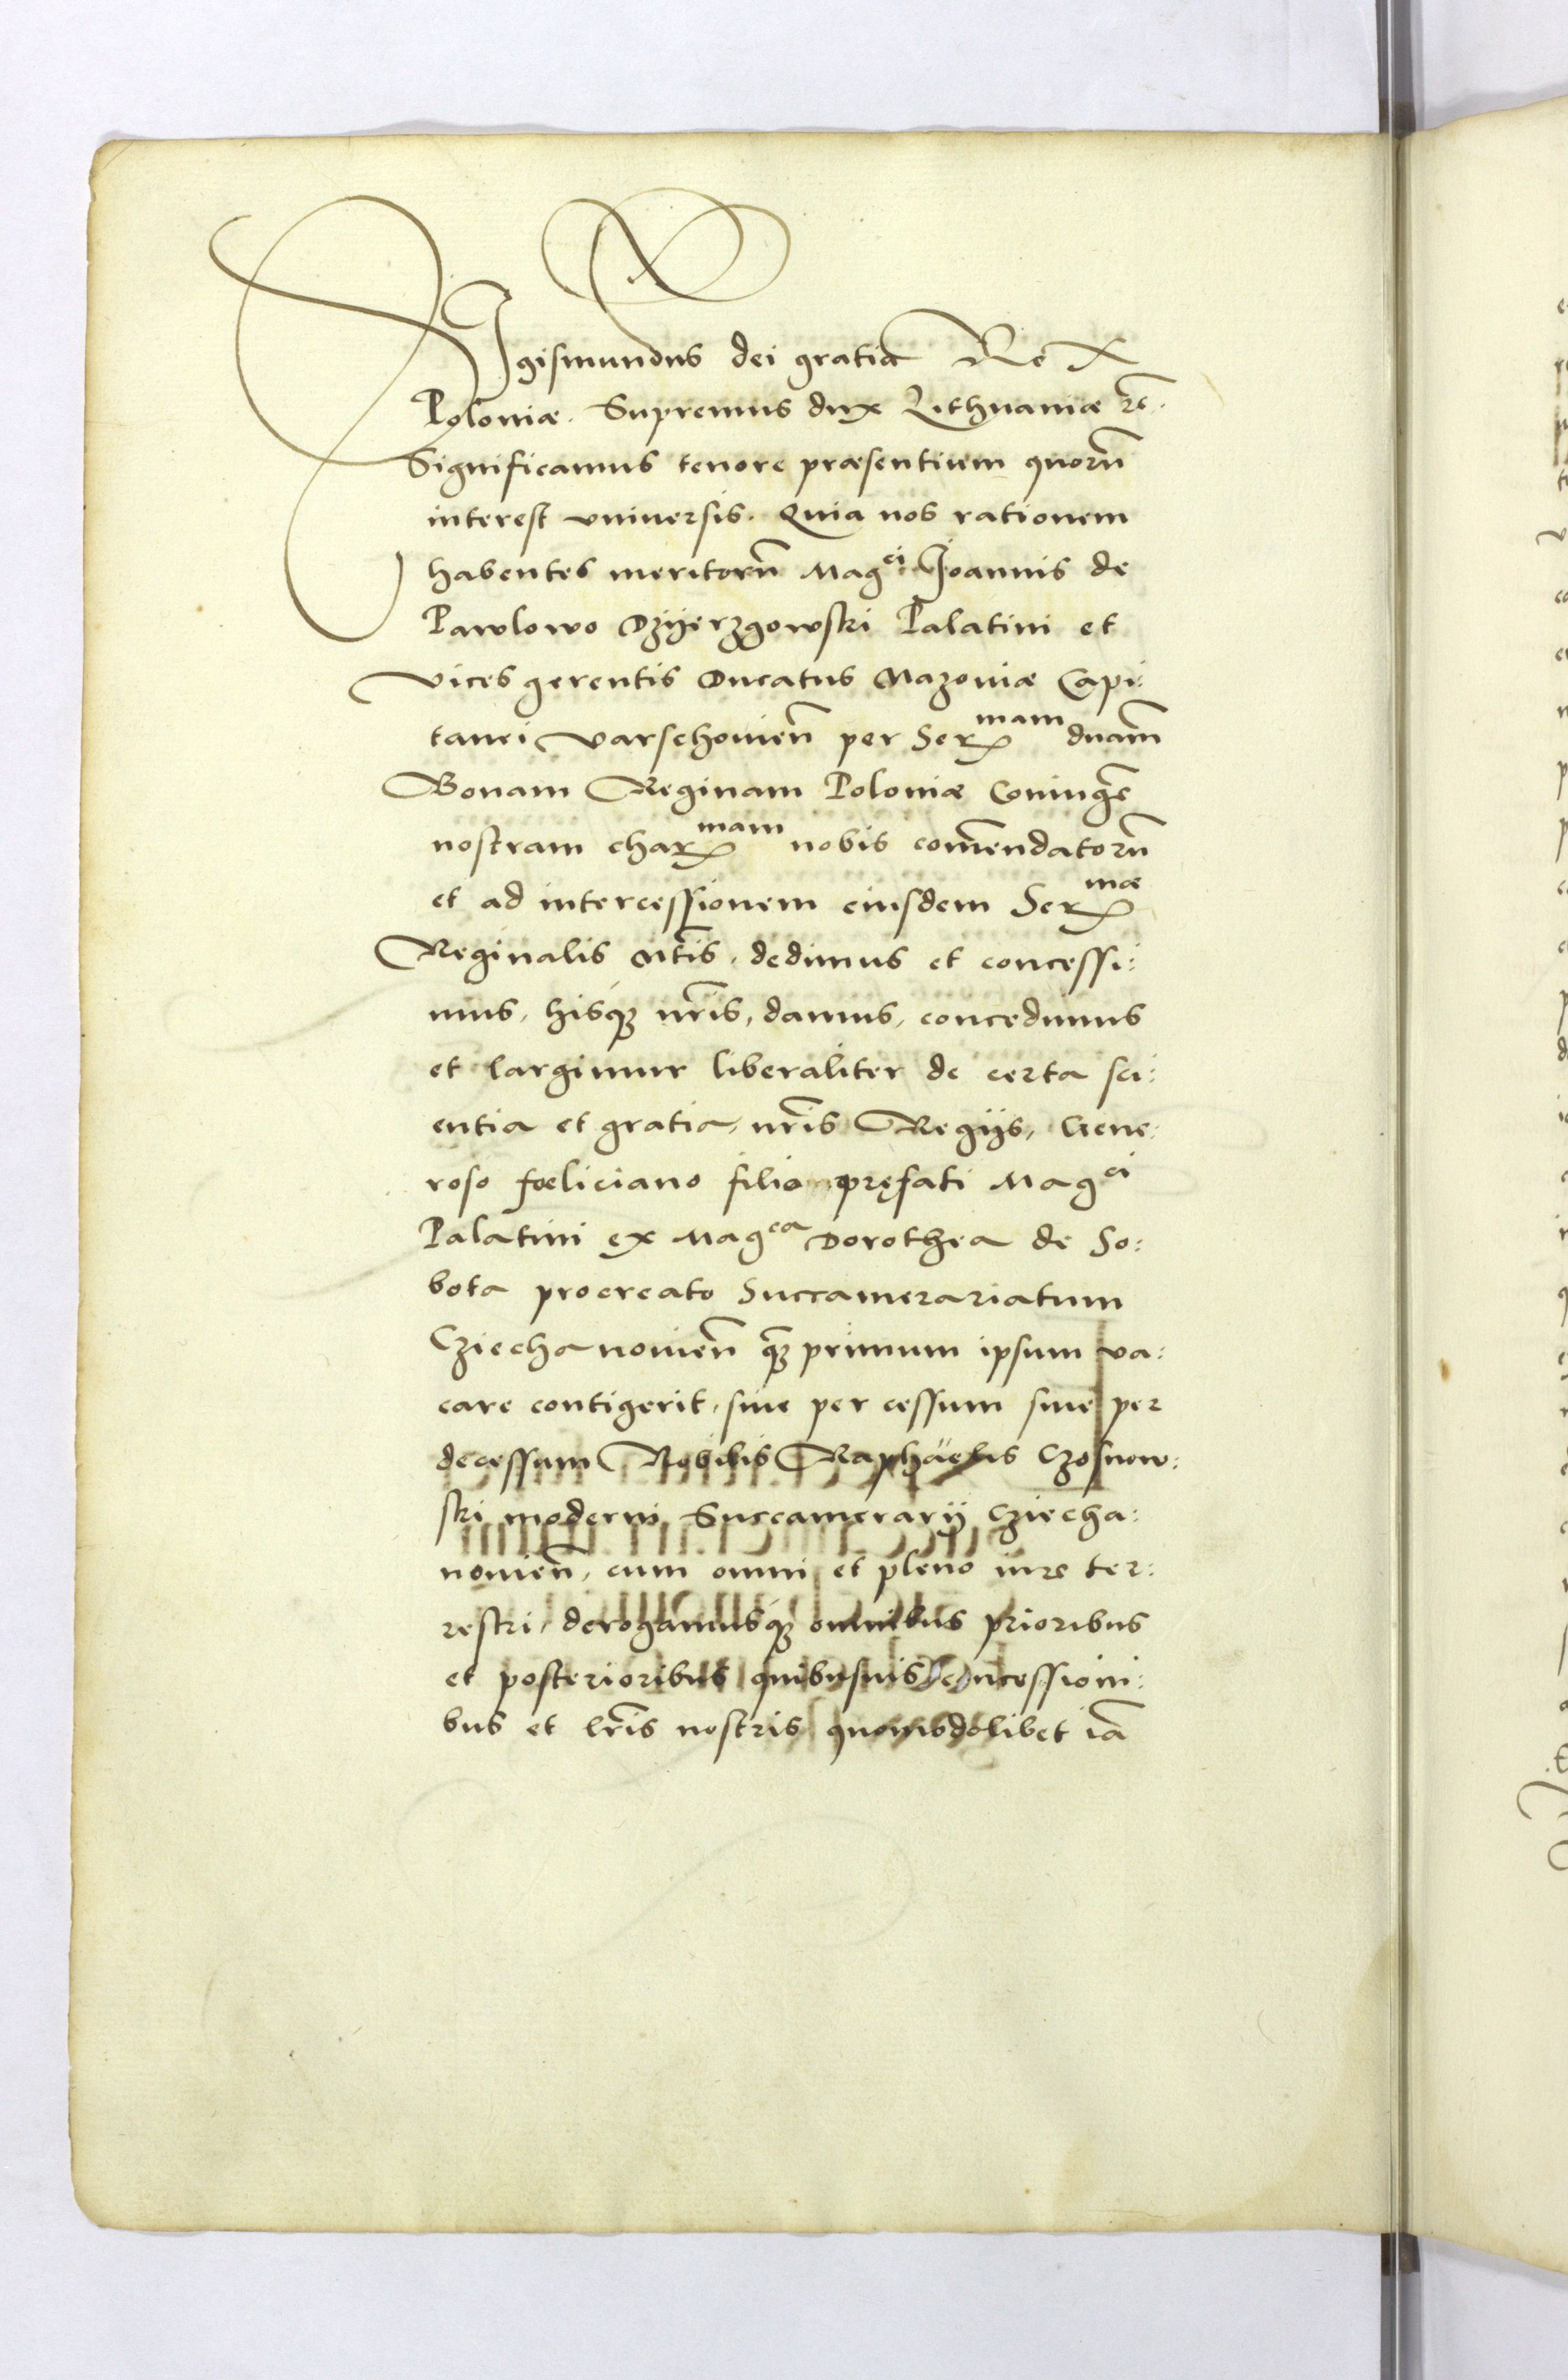 SIgismundus dei gratia ReX
Poloniæ. Supremus dux Lithuaniæ rc̃.
Significamus tenore præsentium quorũ
interest vniuersis. Quia nos rationem
habentes meritorũ Mag^ci Joannis de
Pawlowo Dzyerzgowski Palatini et
vices gerentis Ducatus Mazouiæ Capi:
tanei Varschouien̄ per Ser^mam dnam̄
Bonam Reginam Poloniæ Coniugẽ
nostram char^mam nobis com̄endatorũ
et ad intercessionem eiusdem Ser^mæ
Reginalis Mtis̄, dedimus et concessi:
mus, hisq3 nr̄is, damus, concedimus
et largimur liberaliter de certa sci:
entia et gratia, nr̄is Regijs, Gene:
roso fœliciano filio pręfati Mag^ci
Palatini ex Mag^ca Dorothea de So:
bota procreato Succamerariatum
Cziechanouien̄ q̃3 primum ipsum va:
care contigerit, siue per cessum siue per
decessum Nobilis Raphäelis Czosnow:
ski moderni Succamerarij Cziecha:
nouien̄, cum omni et pleno iure ter:
restri, derogamusq3 omnibus prioribus
et posterioribus quibusuis concessioni:
bus et lr̄is nostris quomodolibet iã